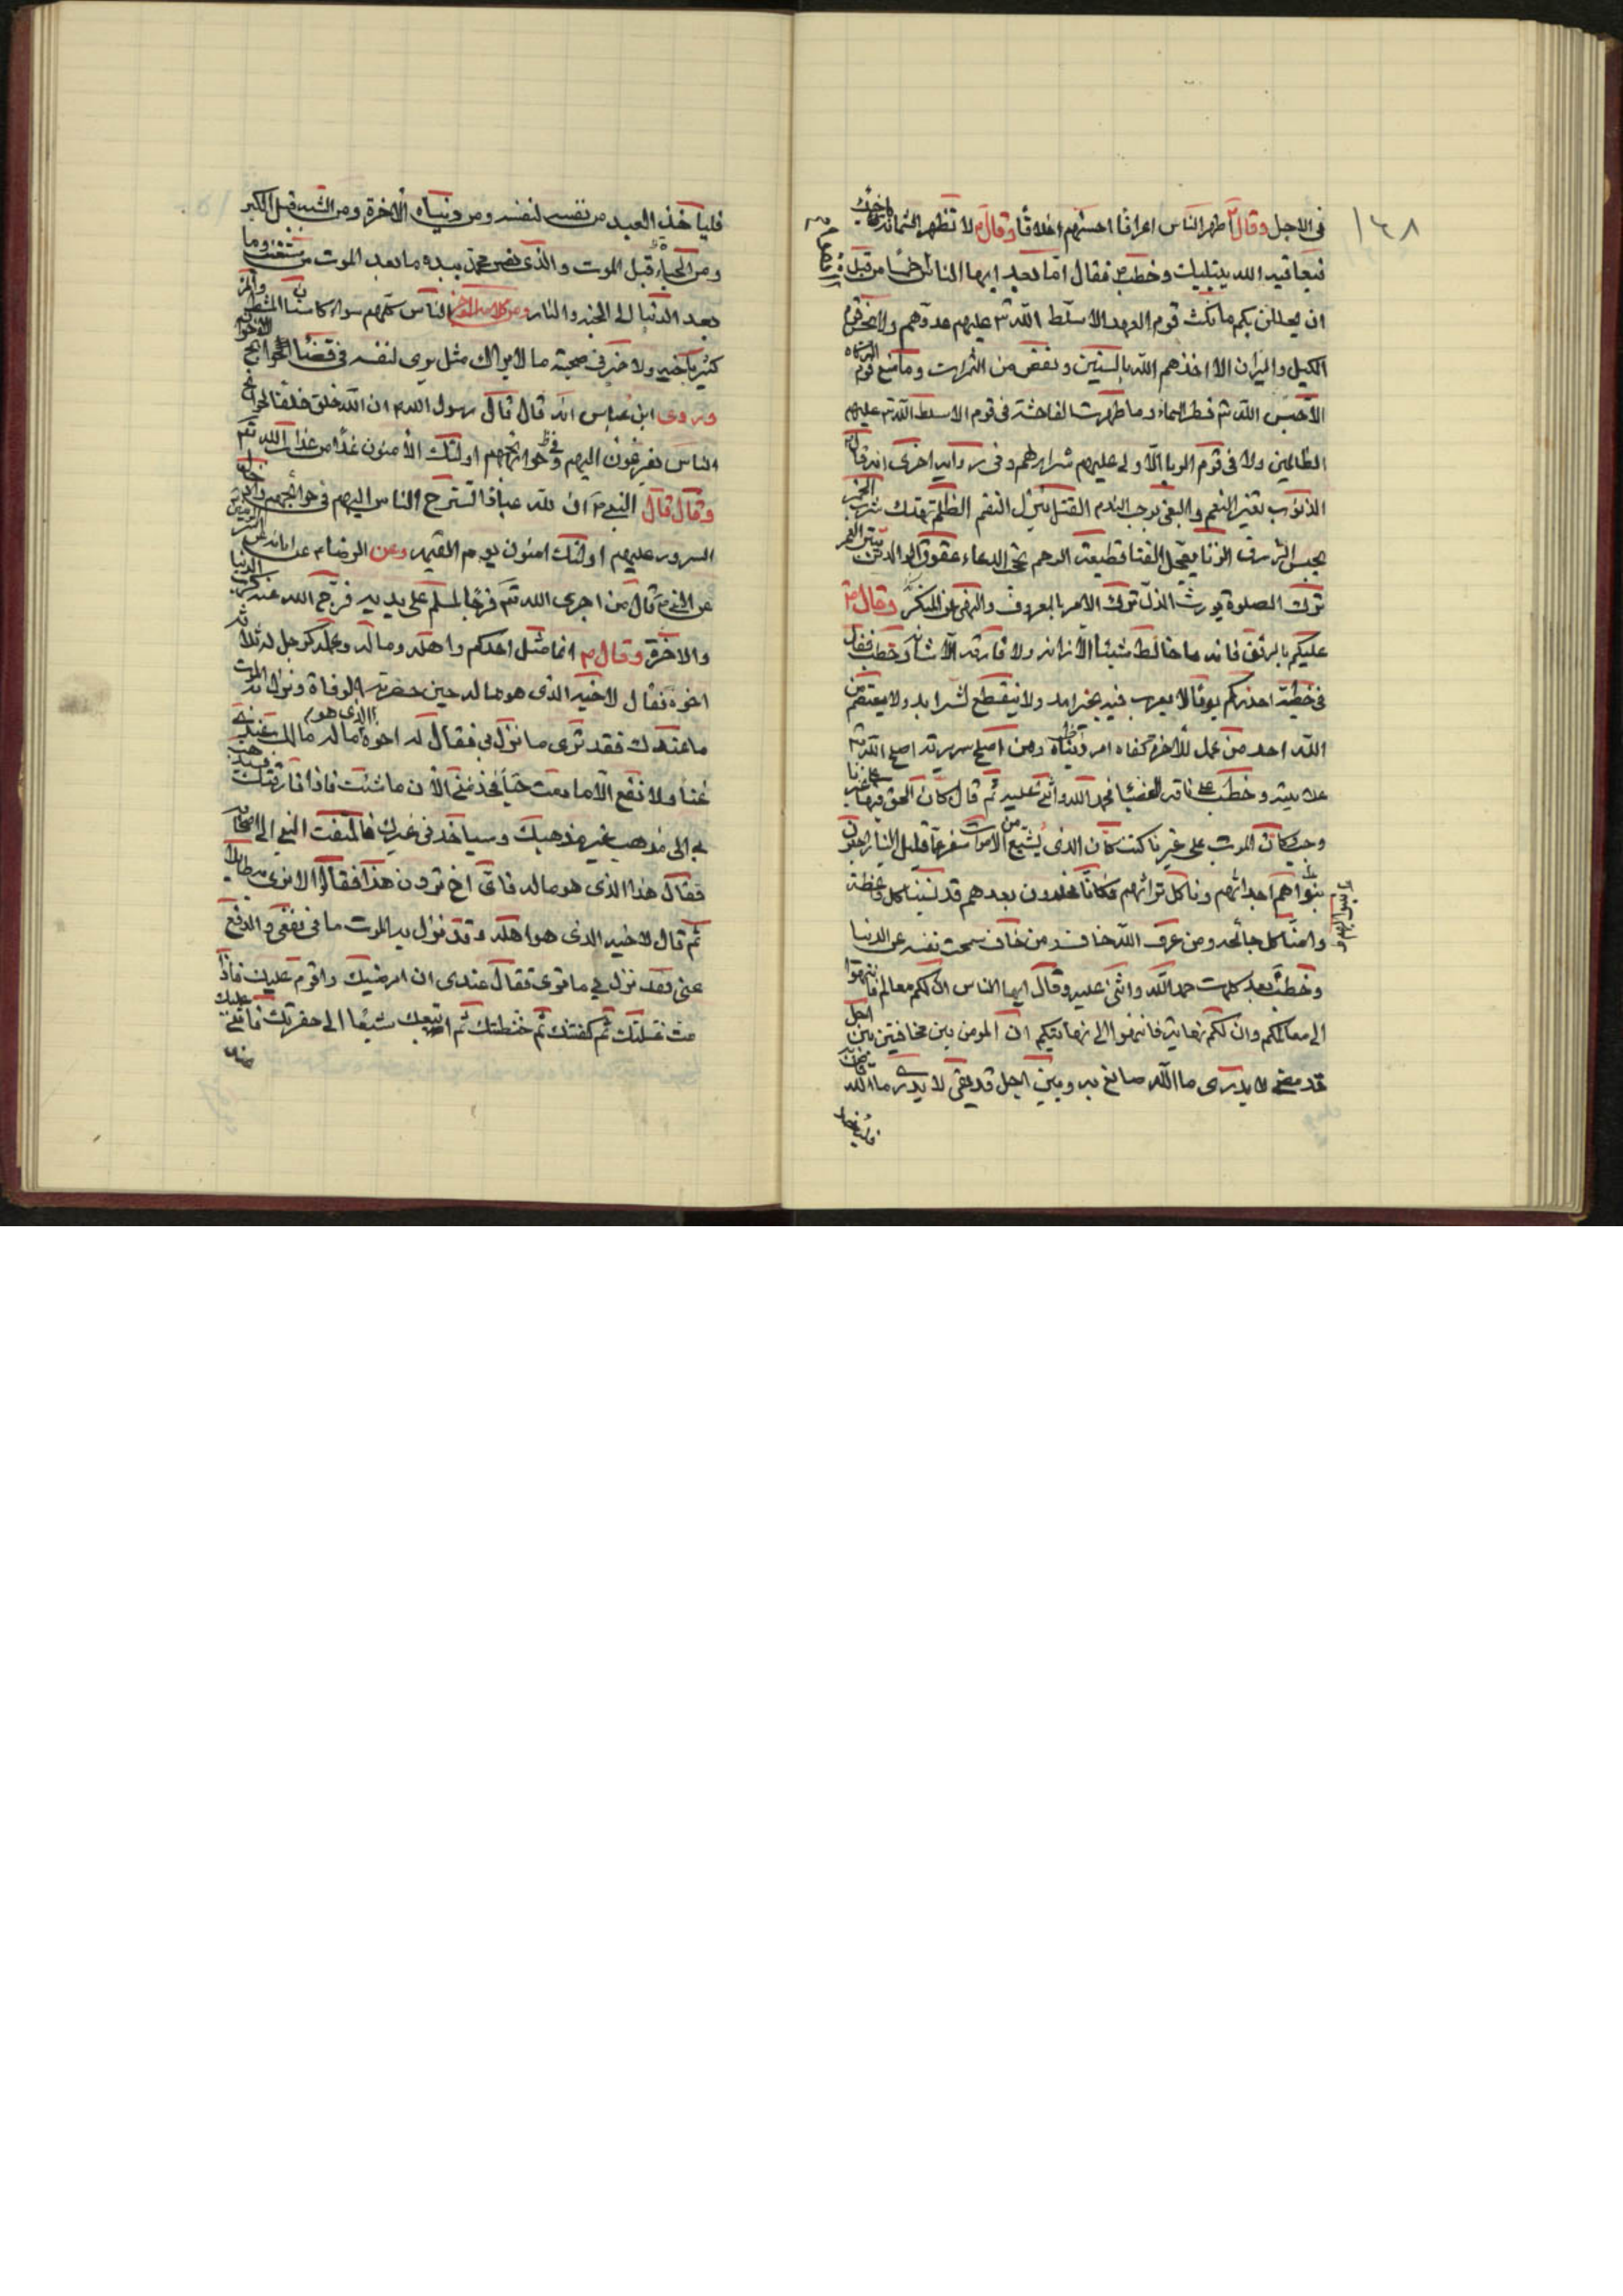 ١٤٨
فى الاجل وقال م اطهر الناس اعراقًا احسنهم اخلاقًا وقال م لا تظهر الشماتة باخيك
فيعافيه الله يبتليك وخطب ص فقال اما بعد ايها الناس خمسًا من قبل
ان يحللن بكم ما نكث قوم العهد الا سلّط الله تع عليهم عدوهم ولا بخس قوم
الكيل والميزان الا اخذهم الله بالسنين ونقص من الثمرات وما منع قوم الزكاة
الا حبس الله تع قطر السماء وما ظهرت الفاحشة فى قوم الا سلط الله تع عليهم
الظالمين ولا فى قوم الربا الّا ولى عليهم شرارهم وفى رواية اخرى انه قال
الذنوب تغير النعم والبغى يوجب الندم القتل ينزل النقم الظلم تهتك شرب الخمر
يحبس الرزق الزنا يعجل الفنا قطيعة الرحم تحجب الدعاء عقوق الوالدين يبتر العمر
ترك الصلوة يورث الذل ترك الامر بالمعروف والنهى عن المنكر وقال ص
عليكم بالرفق فانه ما خالط شيئا الا زانه ولا فارقه الّا شانه وخطب فقال
فى خطبته احذركم يومًا لا يعرب فيه بخير امد ولا ينقطع لشر ابد ولا يعتصم من
الله احد من عمل للاخرة كفاه امر دنياه ومن اصلح سريرته اصلح الله تع
علانيته وخطب على ناقته العضبا فحمد الله واثنى عليه ثم قال كان الحق فيها على غيرنا
وجب وكان الموت على غيرنا كتب وكان الذى يشيع من الاموات سفر عما قليل الينا راجعون
نبواهم اجداثهم وناكل تراثهم فكانا مخلدون بعدهم قد نسينا كل واعظة
وامنا كل جائحه ومن عرف الله خاف ومن خاف سمحت نفسه عن الدنيا
وخطب بعد كلمات حمد الله واثنى عليه وقال ايها الناس ان لكم معالم فانتهوا
الى معالمكم وان لكم نهاية فانتهوا الى نهايتكم ان المومن بين مخافتين بين اجل
قد مضى لا يدرى ما الله صانع به وبين اجل قد بقى لا يدرى ما الله
فلياخذ
فلياخذ العبد من نفسه لنفسه ومن دنياه لآخرة ومن الشيبة قبل الكبر
ومن الحياة قبل الموت والذى نفس محمد بيده ما بعد الموت من مستعتب وما
بعد الدنيا الا الجنة والنار الناس كلهم سواء كاسنان المشط والمرء
كثير باخيه ولا خير فى صحبة من لا يرى لك مثل يرى لنفسه فى قضاء الحوائج
وروى ابن عباس انه قال قال رسول الله م ان الله خلق خلقا لحوائج
الناس يفزعون اليهم فى حوائجهم اولئك الامنون غدًا من عذاب الله تع
وقال قال النبى م ان لله عبادًا تسترح الناس اليهم فى حوائجهم
السرور عليهم اولئك امنون يوم القيمه وعن الرضا م عن ابائه
عن النبى م قال من اجرى الله تع فرجًا لمسلم على يديه فرّج الله عنه كرب الدنيا
والاخرة وقال م انما مثل احدكم واهله وماله وعمله كرجل له ثلاثة
اخوة فقال لاخيه الذى هو ماله حين حضرته الوفاة ونزل به الموت
ما عندك فقد ترى ما نزل بى فقال له اخوه الذى هو ماله مالك عندى
غنا ولا نفع الا ما دمت حيًا فخذ منى الان ما شئت فاذا فارقتك
بى الى مذهب غير مذهبك وسياخذنى غيرك فالتفت النبى الى اصحابه
فقال هذا الذى هو ماله فاى اخ ترون هذا فقالوا لا نرى به طائلا
ثم قال لاخيه الذى هو اهله وقد نزل به الموت ما فى نفعى والدفع
عنى فقد نزل بى ما ترى فقال عندى ان امرضك واقوم عليك فاذا
مت غسلتك ثم كفنتك ثم حنطتك ثم اتبعك مشيعًا الى حفرتك فاثنى عليك